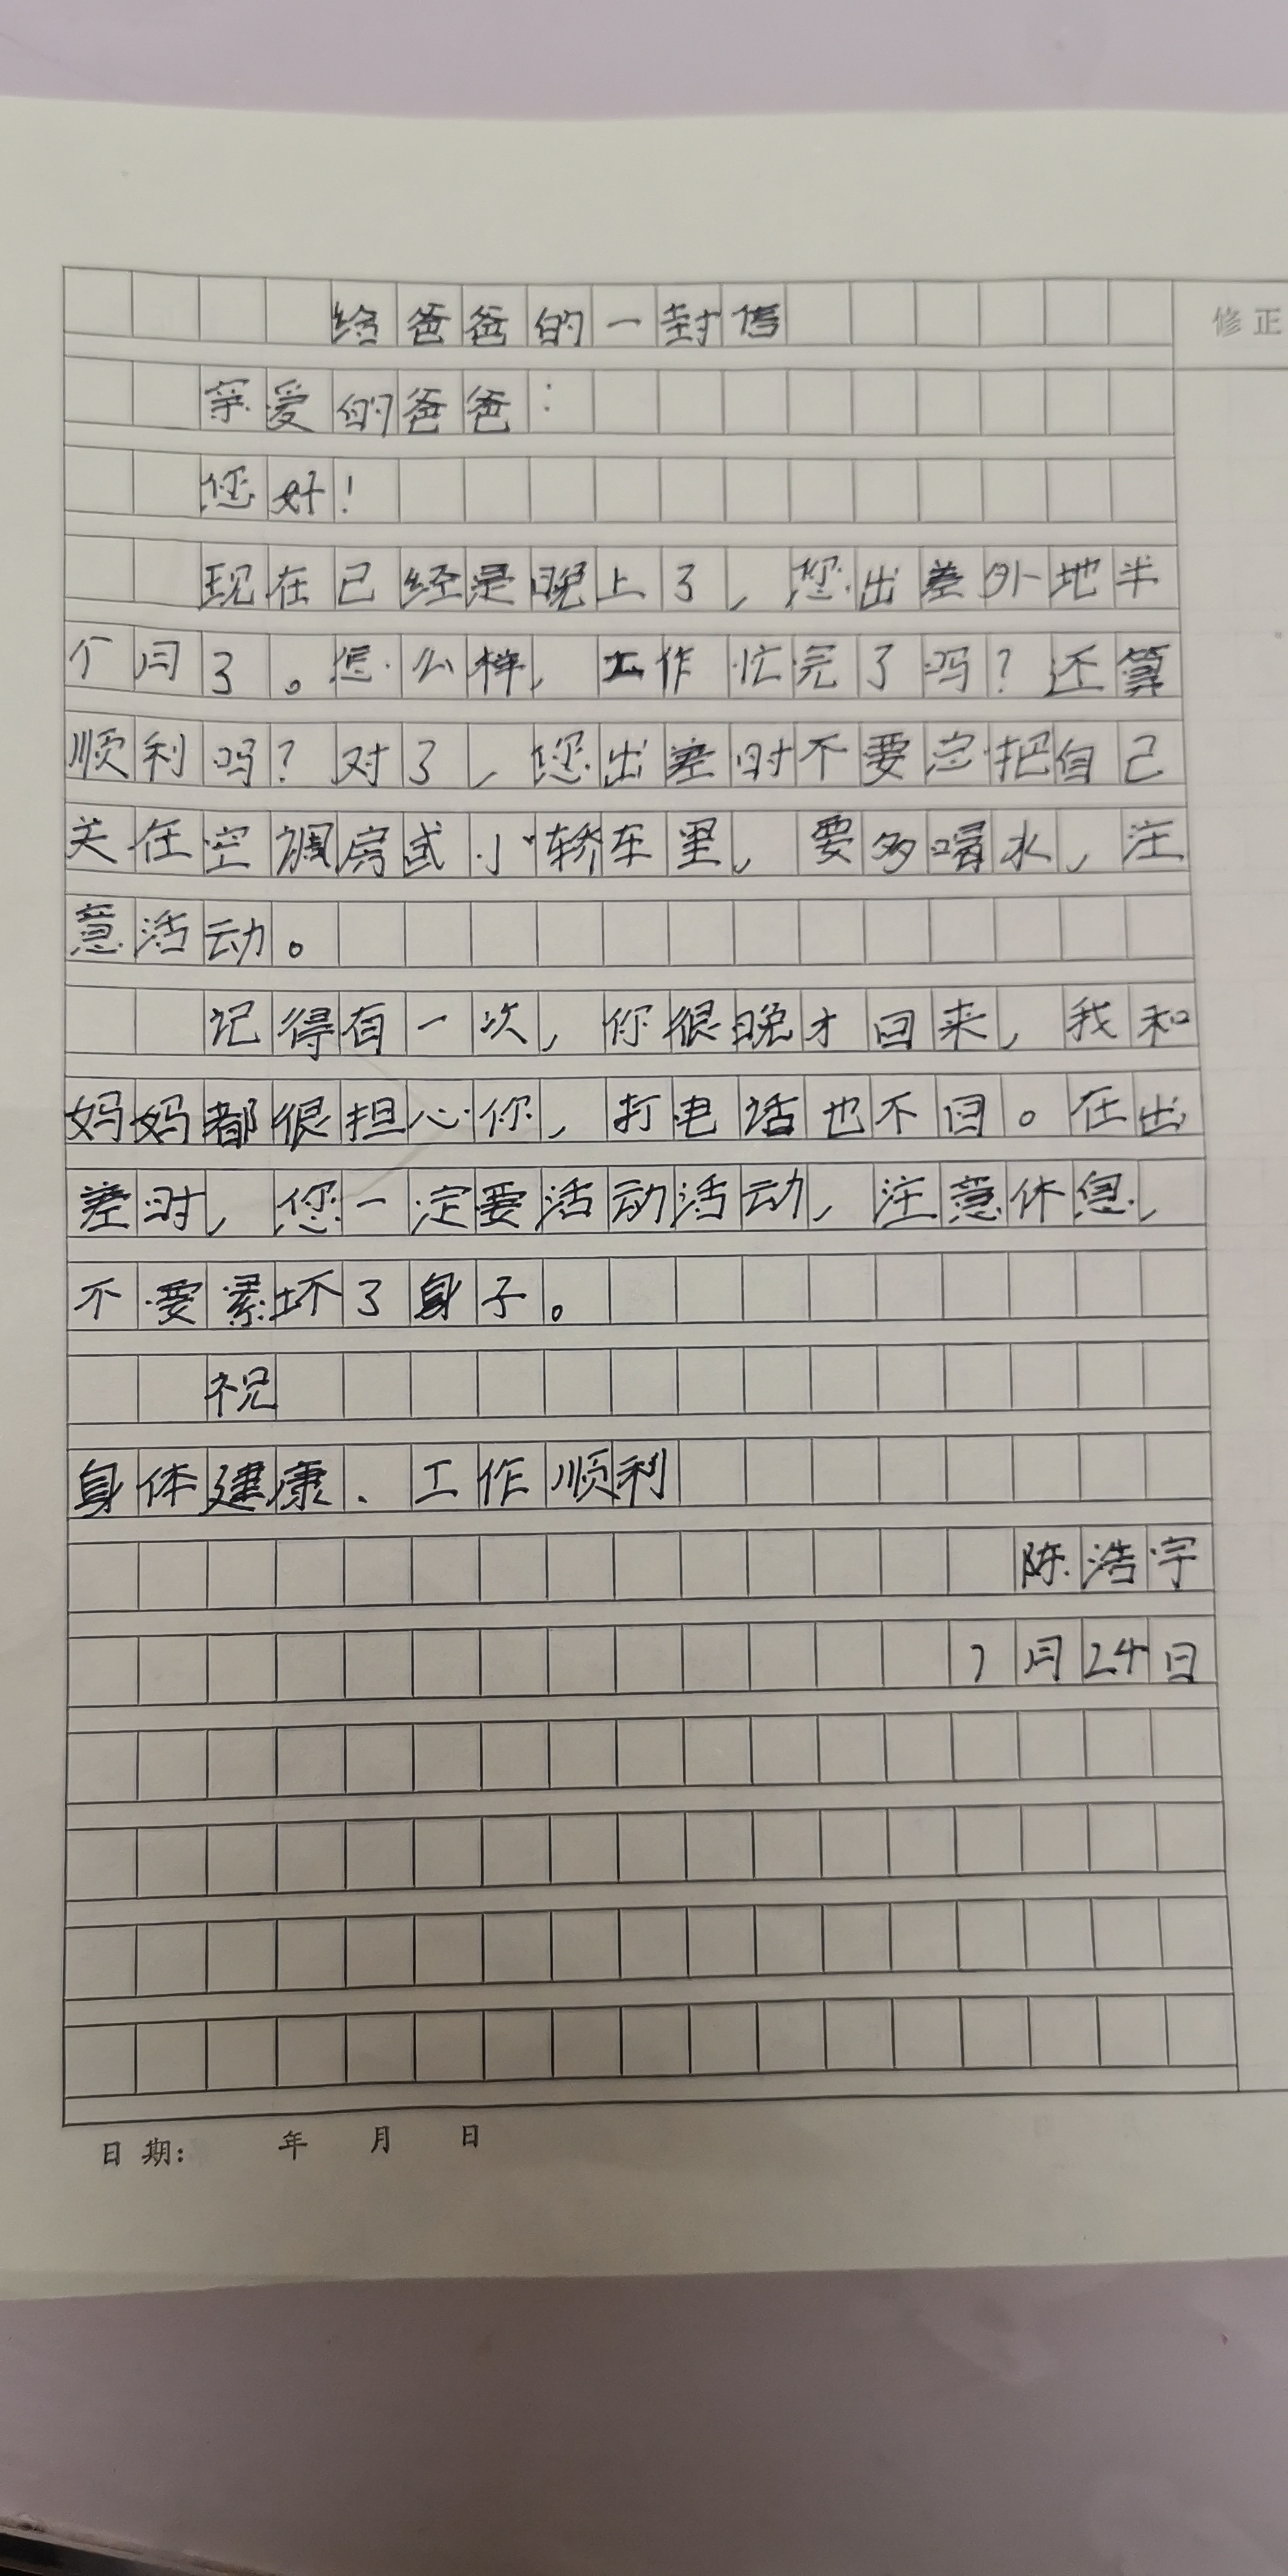 给爸爸的一封信
修正
亲爱的爸爸：
您好！
现在已经是晚上了，您出差外地半
个月了。怎么样，工作忙完了吗？还算
顺利吗？对了，您出差时不要总把自己
关在空调房或小轿车里，要多喝水，注
意活动。
记得有一次，你很晚才回来，我和
妈妈都很担心你，打电话也不回。在出
差时，您一定要活动活动，注意休息，
不要累坏了身子。
祝
身体健康、工作顺利
陈浩宇
7月24日
日期： 年 月 日